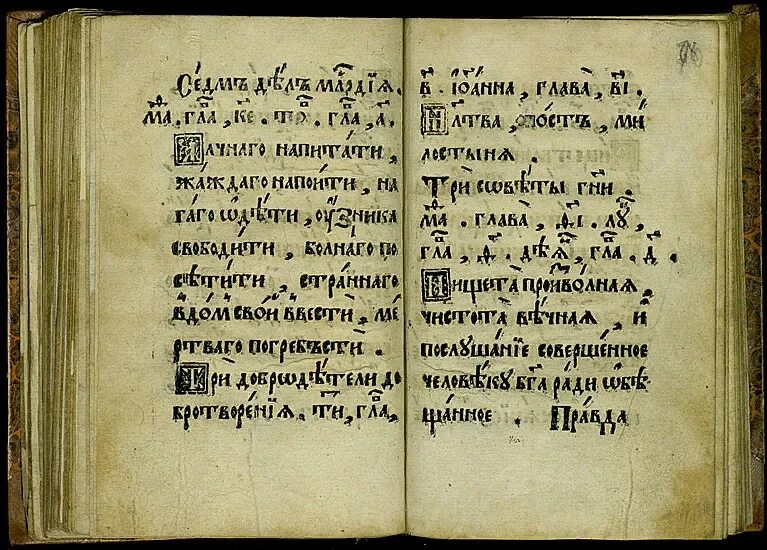 Се́дмь дѣ́лъ мл҃рдїѧ .
Мѳ҃. гл҃а, к҃е . то҃в . гл҃а, а҃.
А҆́лчнаго напита́ти ,
жа́ждаго напои́ти , на
га́го ѡ҆дѣ́ти , ѹ҆́зника
свободи́ти , болна́го по
сѣти́ти , стра́ннаго
в̾до́м̾ сво́й в̾вести́ , ме́
ртваго погребъсти́ .
Три́ доброѡдѣ́тели до
бротворе́нїѧ . ти҃, гл҃а,
в҃ . їѡа́нна , глава̀ , в҃і .
Мл҃тва , по́стъ , ми́
лостынѧ .
Трѝ совѣ́ты гд҃ни .
Мѳ҃ . глава̀ , ѳ҃і . лꙋ҃ ,
гл҃а , ѳ҃ . дѣѧ҃ , гл҃а . д҃ .
Нищета̀ прои́зво́лнаѧ ,
чистота̀ вѣ́чнаѧ , и҆
послꙋша́нїе соверше́нное
человѣ́кꙋ бг҃а ра́ди ѡ҆бѣ
ща́нное . Пра́вда